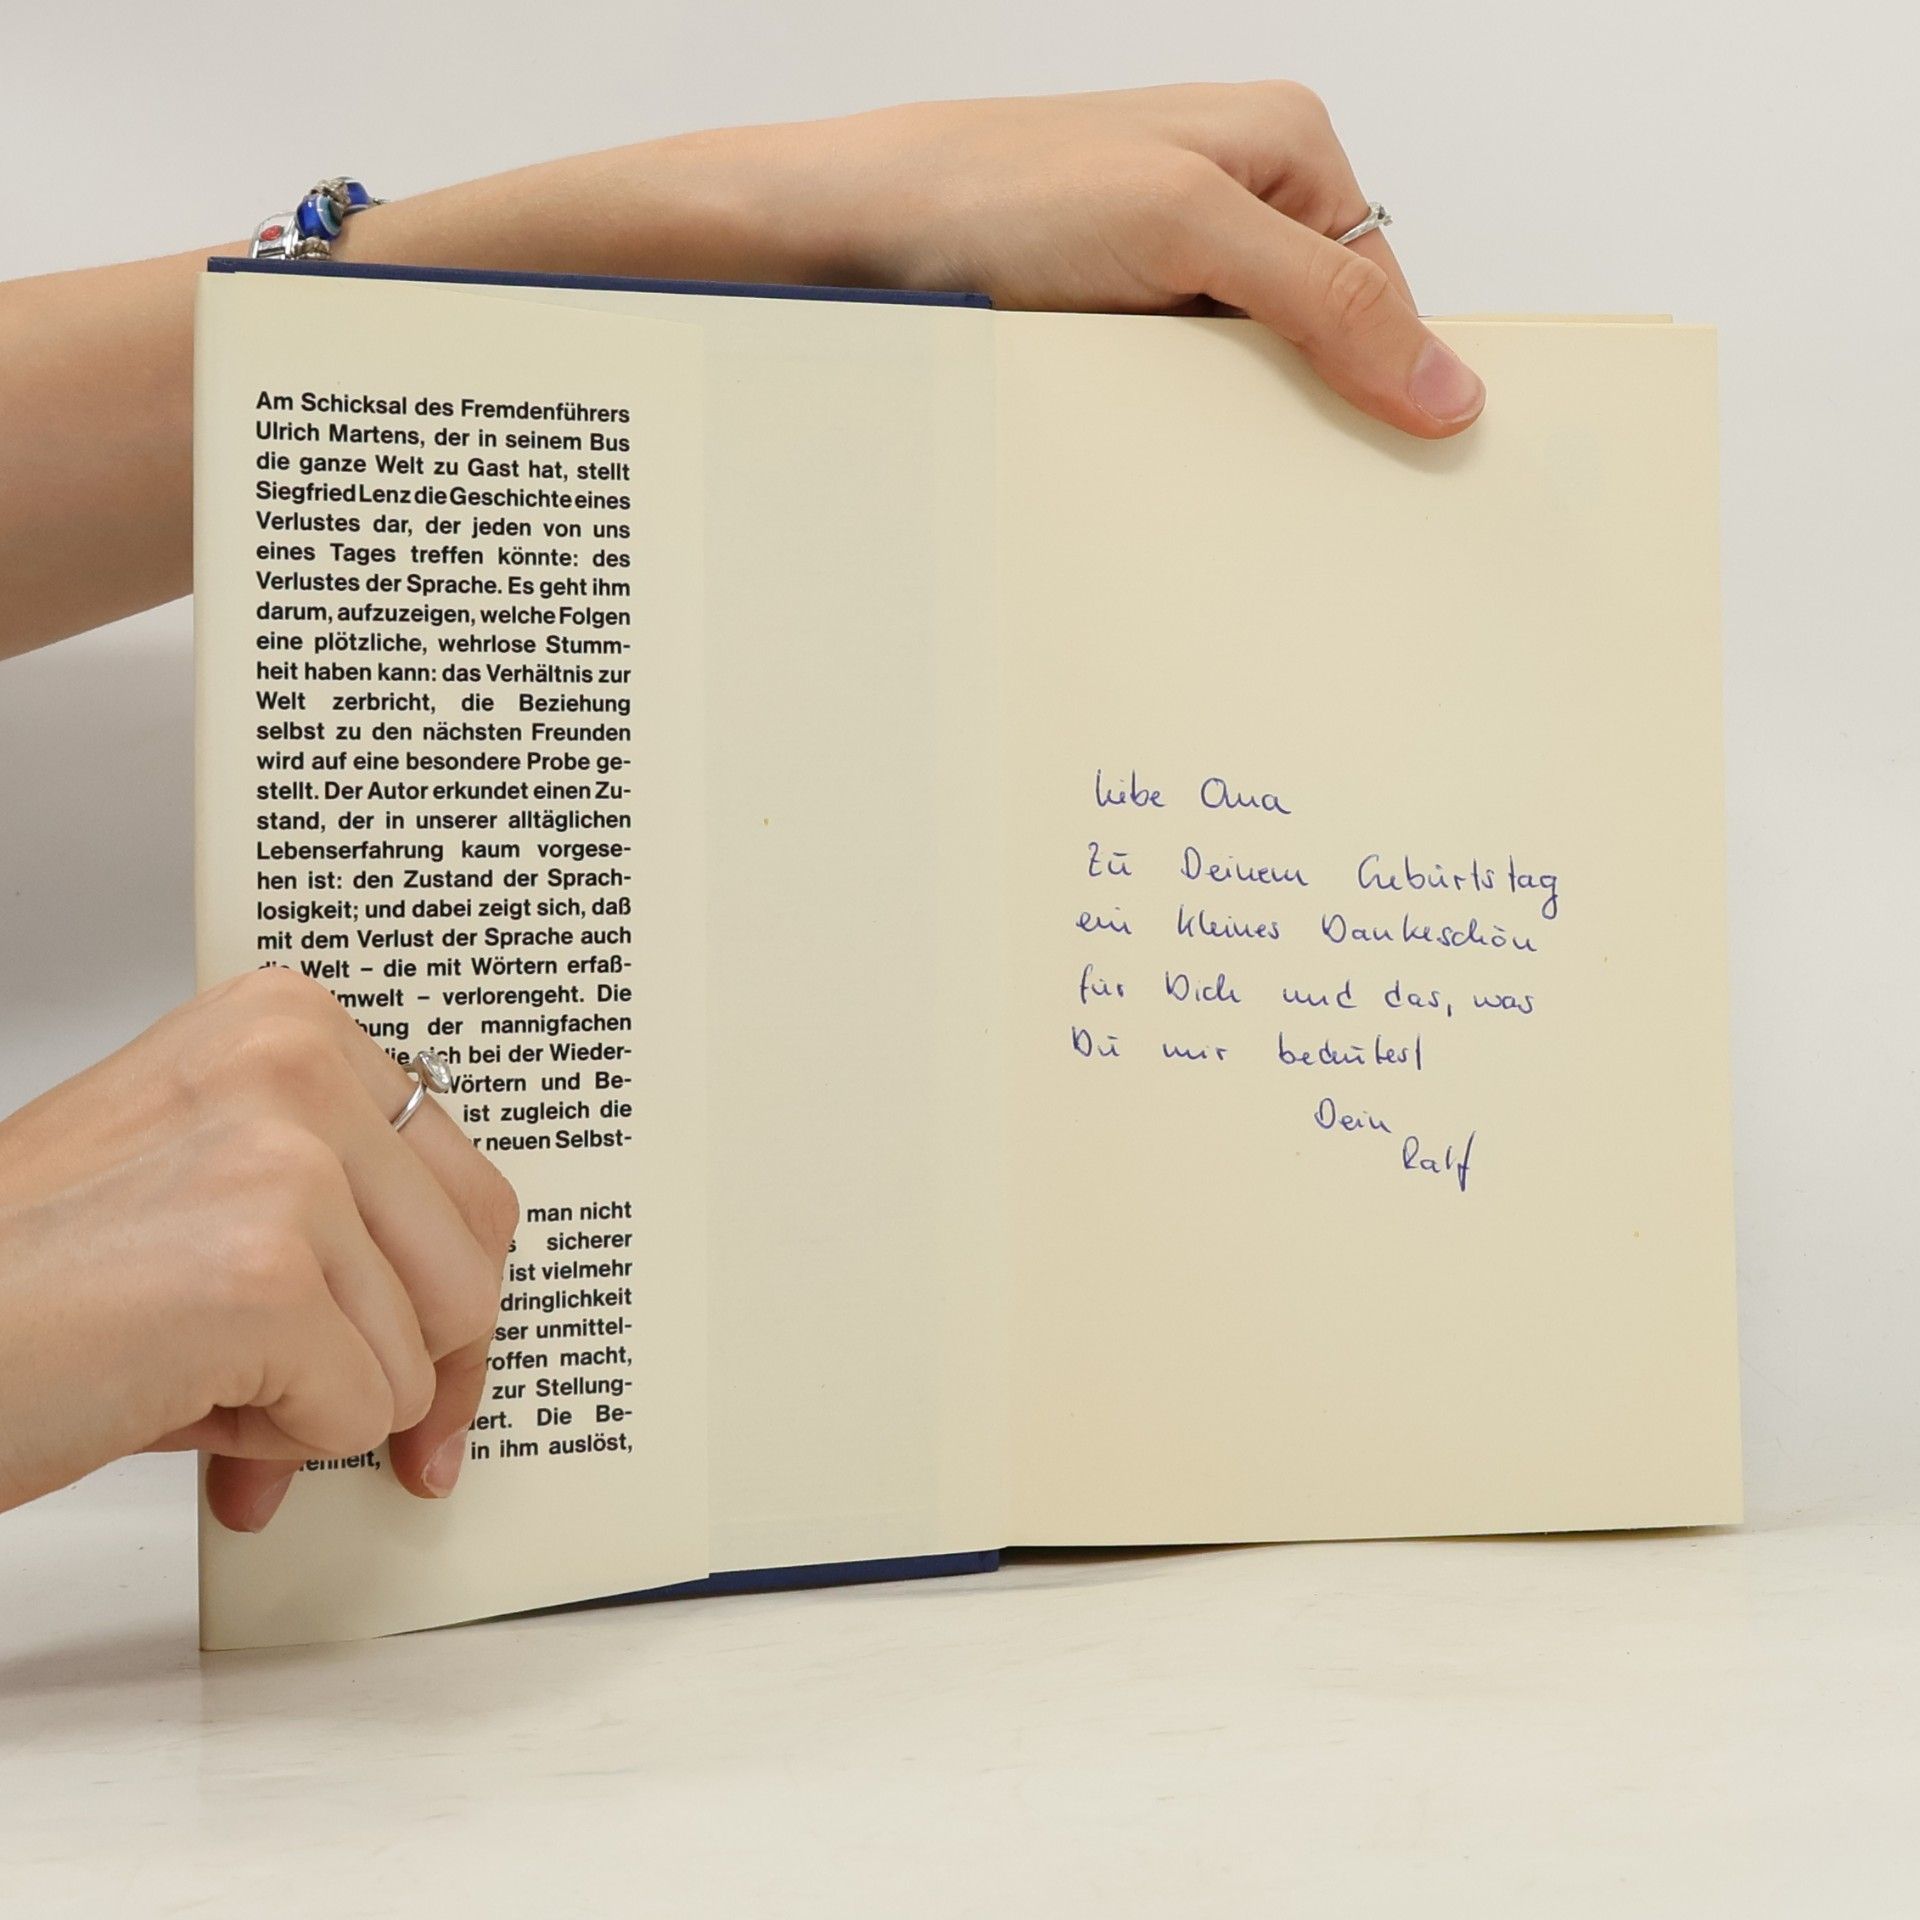 Am Schicksal des Fremdenführers
Ulrich Martens, der in seinem Bus
die ganze Welt zu Gast hat, stellt
Siegfried Lenz die Geschichte eines
Verlustes dar, der jeden von uns
eines Tages treffen könnte: des
Verlustes der Sprache. Es geht ihm
darum, aufzuzeigen, welche Folgen
eine plötzliche, wehrlose Stumm-
heit haben kann: das Verhältnis zur
Welt zerbricht, die Beziehung
selbst zu den nächsten Freunden
wird auf eine besondere Probe ge-
stellt. Der Autor erkundet einen Zu-
stand, der in unserer alltäglichen
Lebenserfahrung kaum vorgese-
hen ist: den Zustand der Sprach-
losigkeit; und dabei zeigt sich, daß
mit dem Verlust der Sprache auch
die Welt – die mit Wörtern erfaß-
mwelt – verlorengeht. Die
bung der mannigfachen
die sich bei der Wieder-
Wörtern und Be-
ist zugleich die
r neuen Selbst-
man nicht
s sicherer
ist vielmehr
dringlichkeit
ser unmittel-
roffen macht,
zur Stellung-
ert. Die Be-
enheit, in ihm auslöst,
Liebe Oma
Zu Deinem Geburtstag
ein kleines Dankeschön
für Dich und das, was
Du mir bedeutest
Dein
Ralf